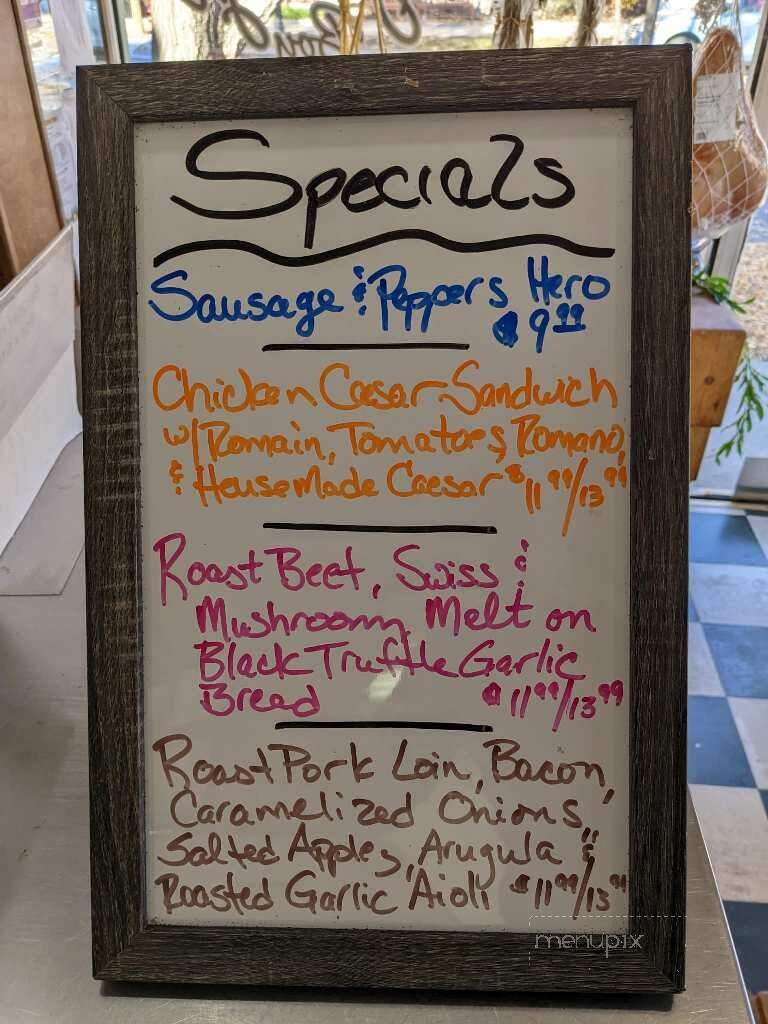 Specials
Sausage & Peppers Hero
$ 9.99
Chicken Caesar Sandwich
w/ Romain, Tomatoes, Romano,
& HouseMade Caesar $11.99/13.99
Roast Beef, Swiss &
Mushroom Melt on
Black Truffle Garlic
Bread $11.99/13.99
Roast Pork Loin, Bacon,
Caramelized Onions,
Salted Apples, Arugula &
Roasted Garlic Aioli $11.99/13.99
menupix